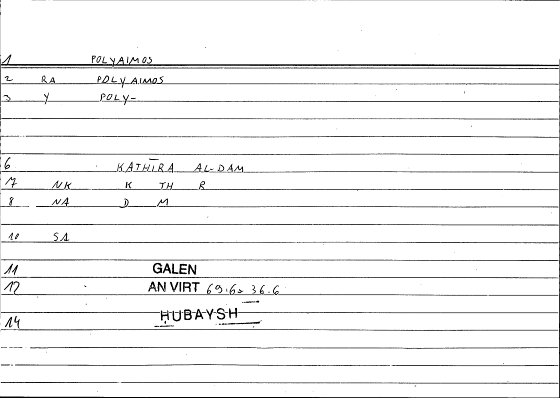 1 POLYAIMOS
2 RA POLYAIMOS
3 Y POLY-
6 KATHĪRA AL-DAM
17 NK K TH R
8 NA D M
10 SA
11 GALEN
12 AN VIRT 69.6 36.6
14 HUBAYSH